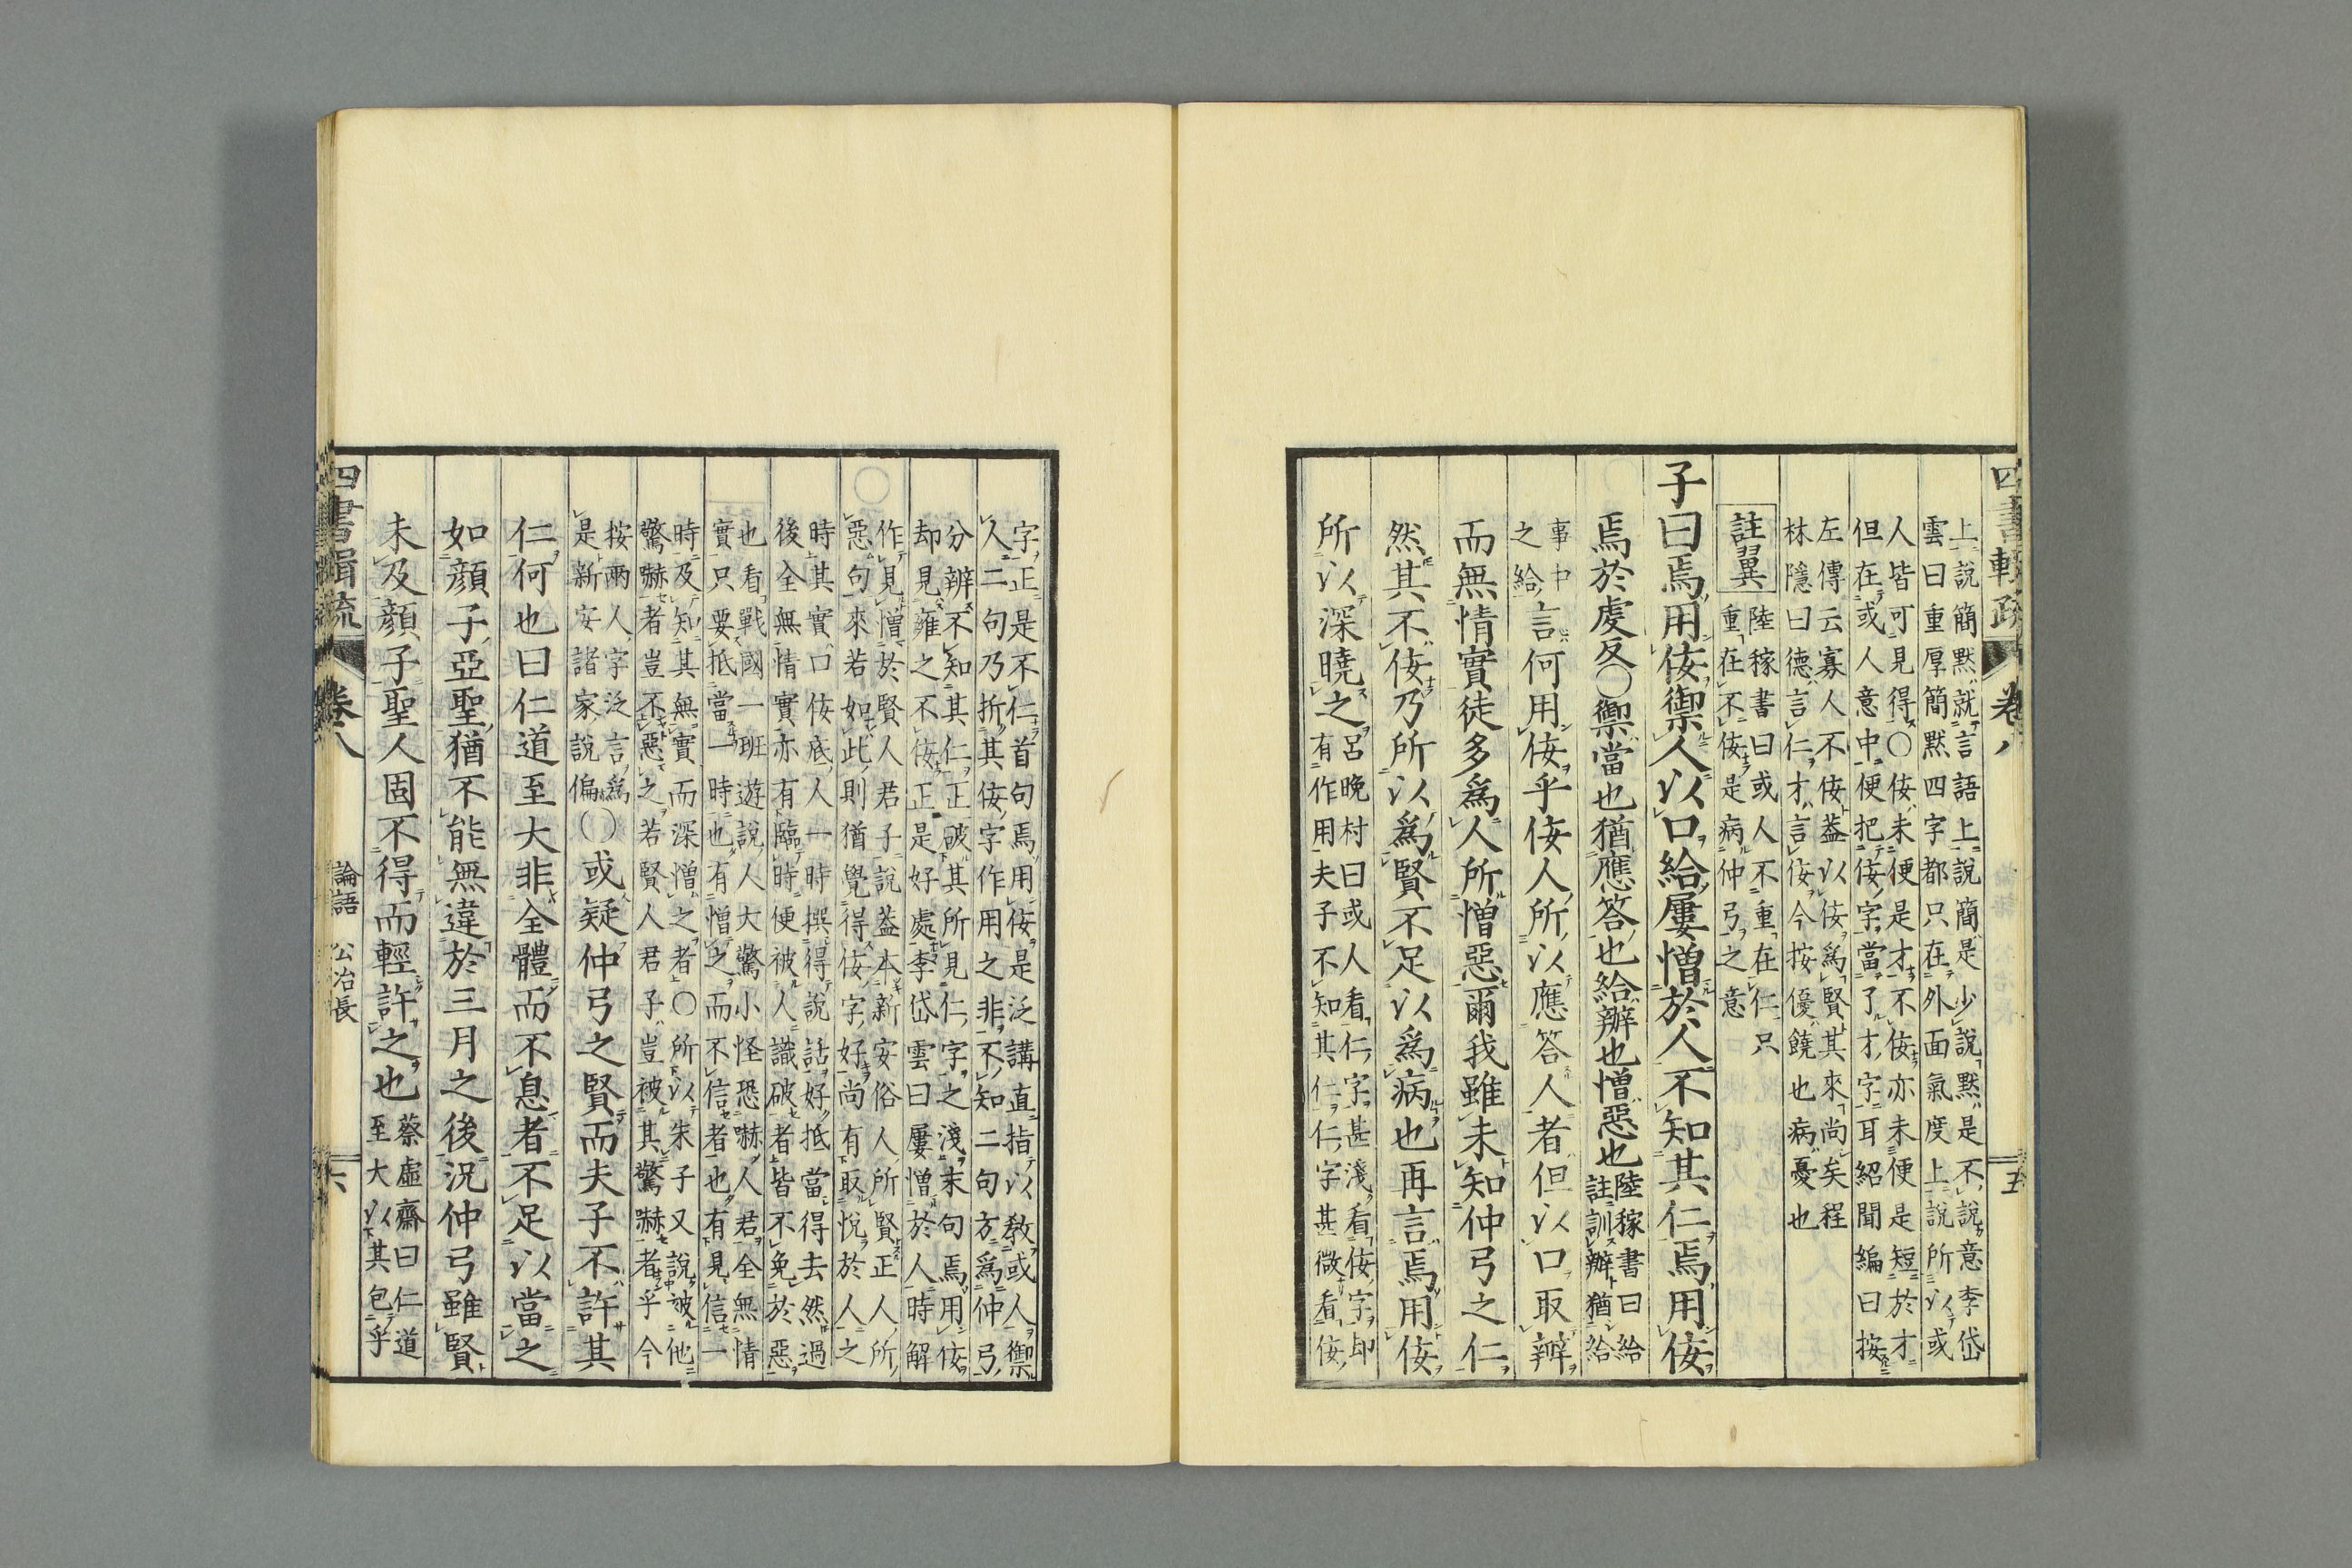 四書輯疏 卷八 五
上說簡默就言語上說簡是少說默是不說意李岱
雲曰重厚簡默四字都只在外面氣度上說所以或
人皆可見得〇佞未便是才不佞亦未便是短於才
但在或人意中便把佞字當了才字耳紹聞編曰按
左傳云寡人不佞蓋以佞爲賢其來尚矣程
林隱曰德言仁才言佞今按優饒也病憂也
註翼
陸稼書曰或人不重在仁只
重在不佞是病仲弓之意
子曰焉用佞禦人以口給屢憎於人不知其仁焉用佞
焉於虔反〇禦當也猶應答也給辦也憎惡也
陸稼書曰給
註訓辦猶給
事中
之給
言何用佞乎佞人所以應答人者但以口取辯
而無情實徒多爲人所憎惡爾我雖未知仲弓之仁
然其不佞乃所以爲賢不足以爲病也再言焉用佞
所以深曉之
呂晚村曰或人看仁字甚淺看佞字卽
有作用夫子不知其仁仁字甚微看佞
字正是不仁首句焉用佞是泛講直指以教或人禦
人二句乃折其佞字作用之非不知二句方爲仲弓
分辨不知其仁正破其所見仁字之淺末句焉用佞
却見雍之不佞正是好處李岱雲曰屢憎於人時解
作見憎於賢人君子說蓋本新安俗人所賢正人所
惡句來若如此則猶覺得佞字好尚有取悅於人之
時其實口佞底人一時撰得說話好抵當得去然過
後全無情實亦有臨時便被人識破者皆不免於惡
也看戰國一班遊說人大驚小怪恐嚇人君全無情
實只要抵當一時也有憎之而不信者也有見信一
時及知其無實而深憎之者〇所以朱子又說被他
驚嚇者豈不惡之若賢人君子豈被其驚嚇者乎今
按兩人字泛言爲
是新安諸家說偏
〇或疑仲弓之賢而夫子不許其
仁何也曰仁道至大非全體而不息者不足以當之
如顏子亞聖猶不能無違於三月之後況仲弓雖賢
未及顏子聖人固不得而輕許之也
蔡虛齋曰仁道
至大以其包乎
四書輯疏 卷八 論語 公冶長 六